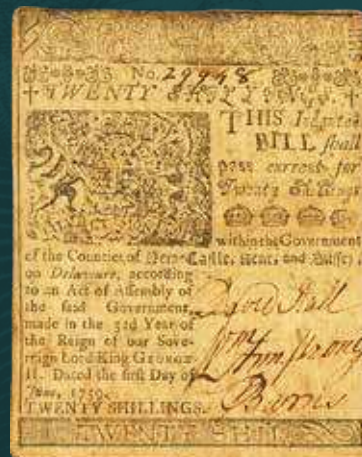 No. 29948
TWENTY SHILLINGS.
THIS Indented
BILL shall
pass current for
Twenty Shillings
within the Government
of the Counties of New-Castle, Kent, and Sussex,
on Delaware, according
to an Act of Assembly of
the said Government,
made in the 32d Year of
the Reign of our Sove-
reign Lord King GEORGE
II. Dated the first Day of
June, 1759.
TWENTY SHILLINGS.
TWENTY SHIL